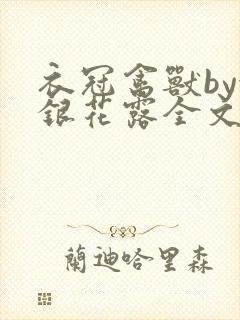 衣冠禽獸by
銀花露全文
蘭迪哈里森